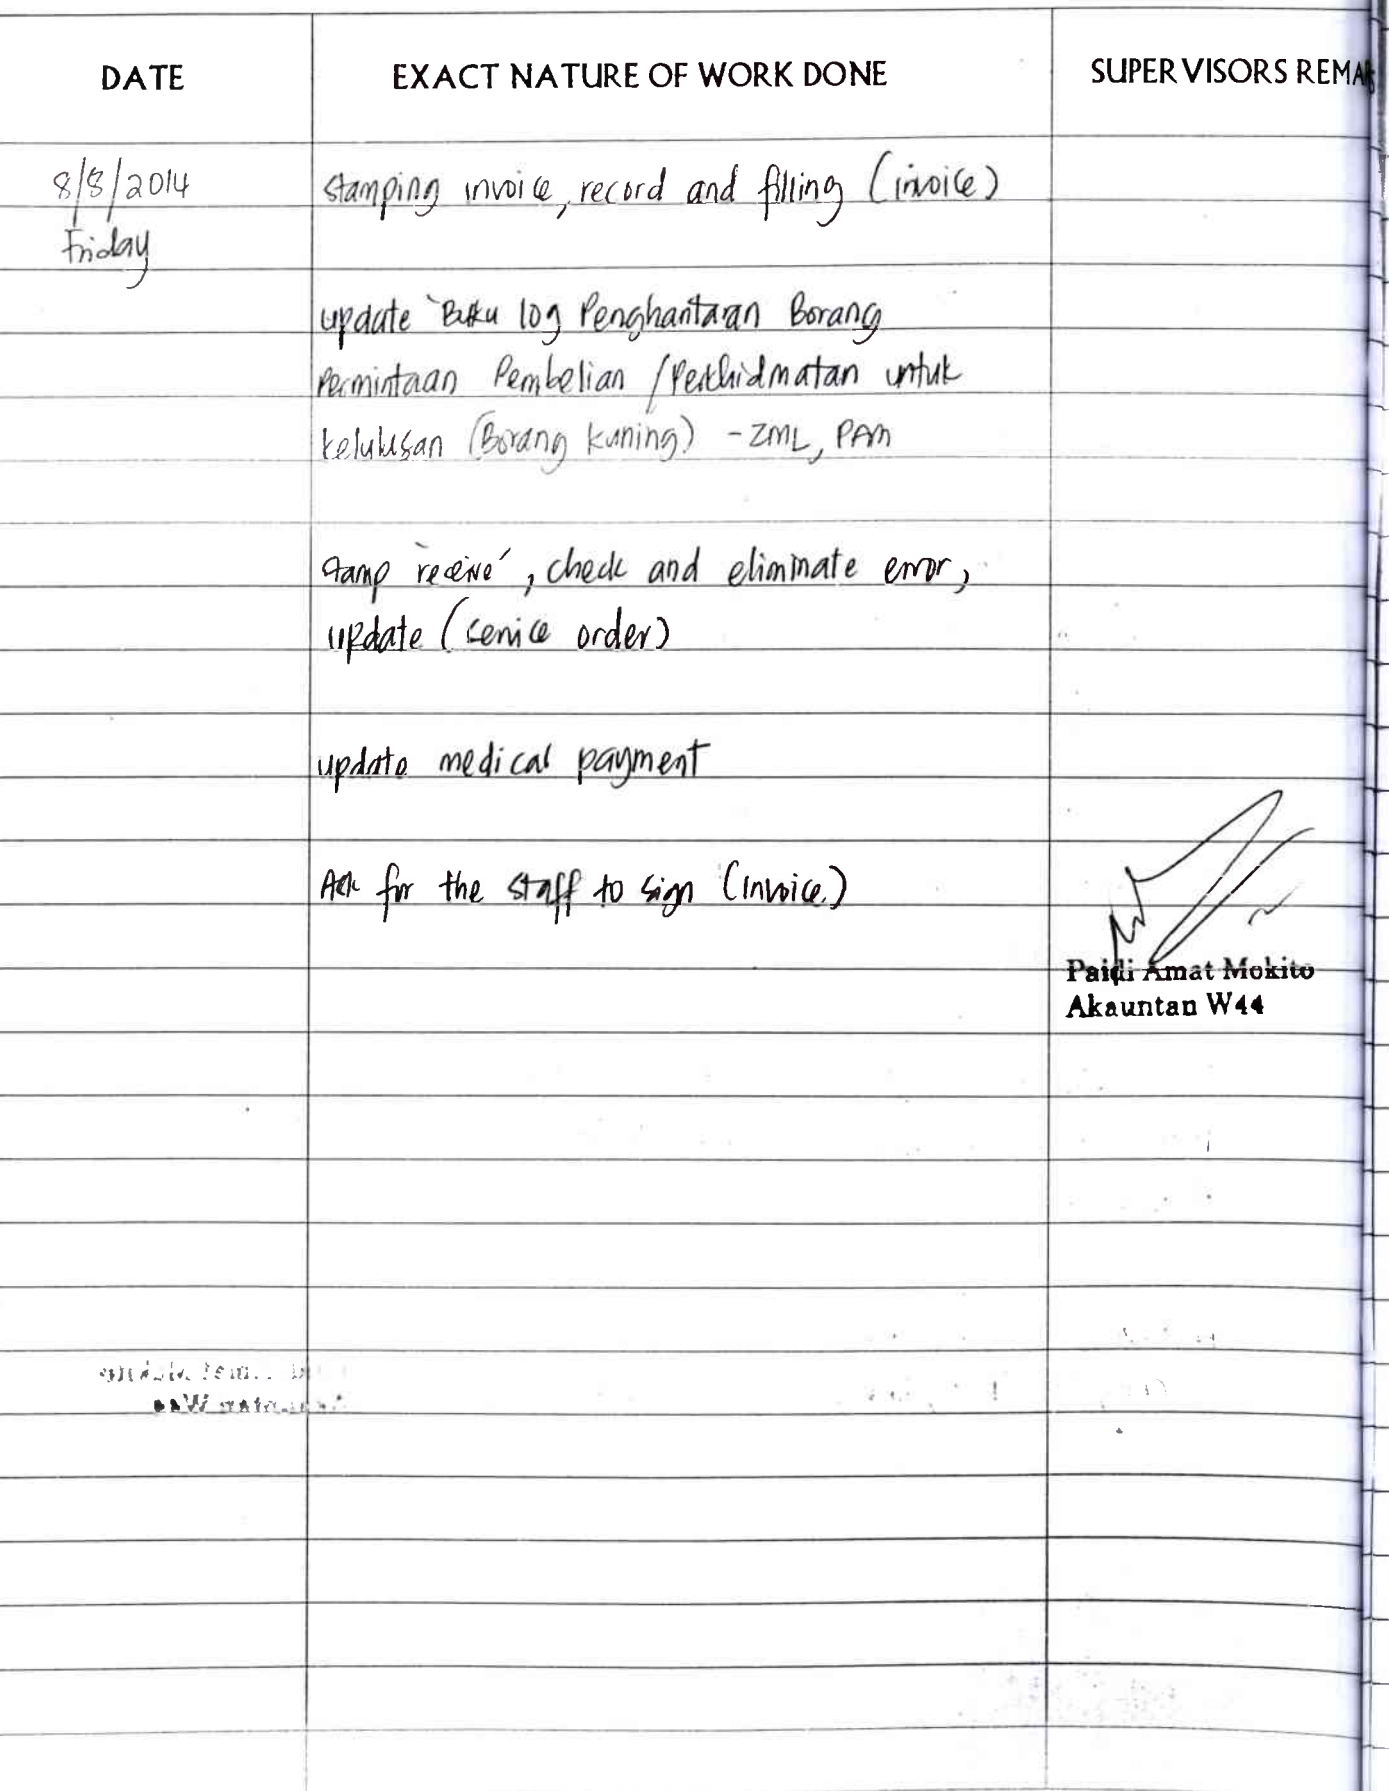 DATE EXACT NATURE OF WORK DONE SUPERVISORS REMA
8/8/2014 stamping invoice, record and filling (invoice)
Friday
update `Buku log Penghantaran Borang
Permintaan Pembelian / Perkhidmatan untuk
kelulusan (Borang kuning) - ZML, PAM
stamp `receive´, check and eliminate error,
update (service order)
update medical payment
Ask for the staff to sign (Invoice)
Paidi Amat Mokito
Akauntan W44